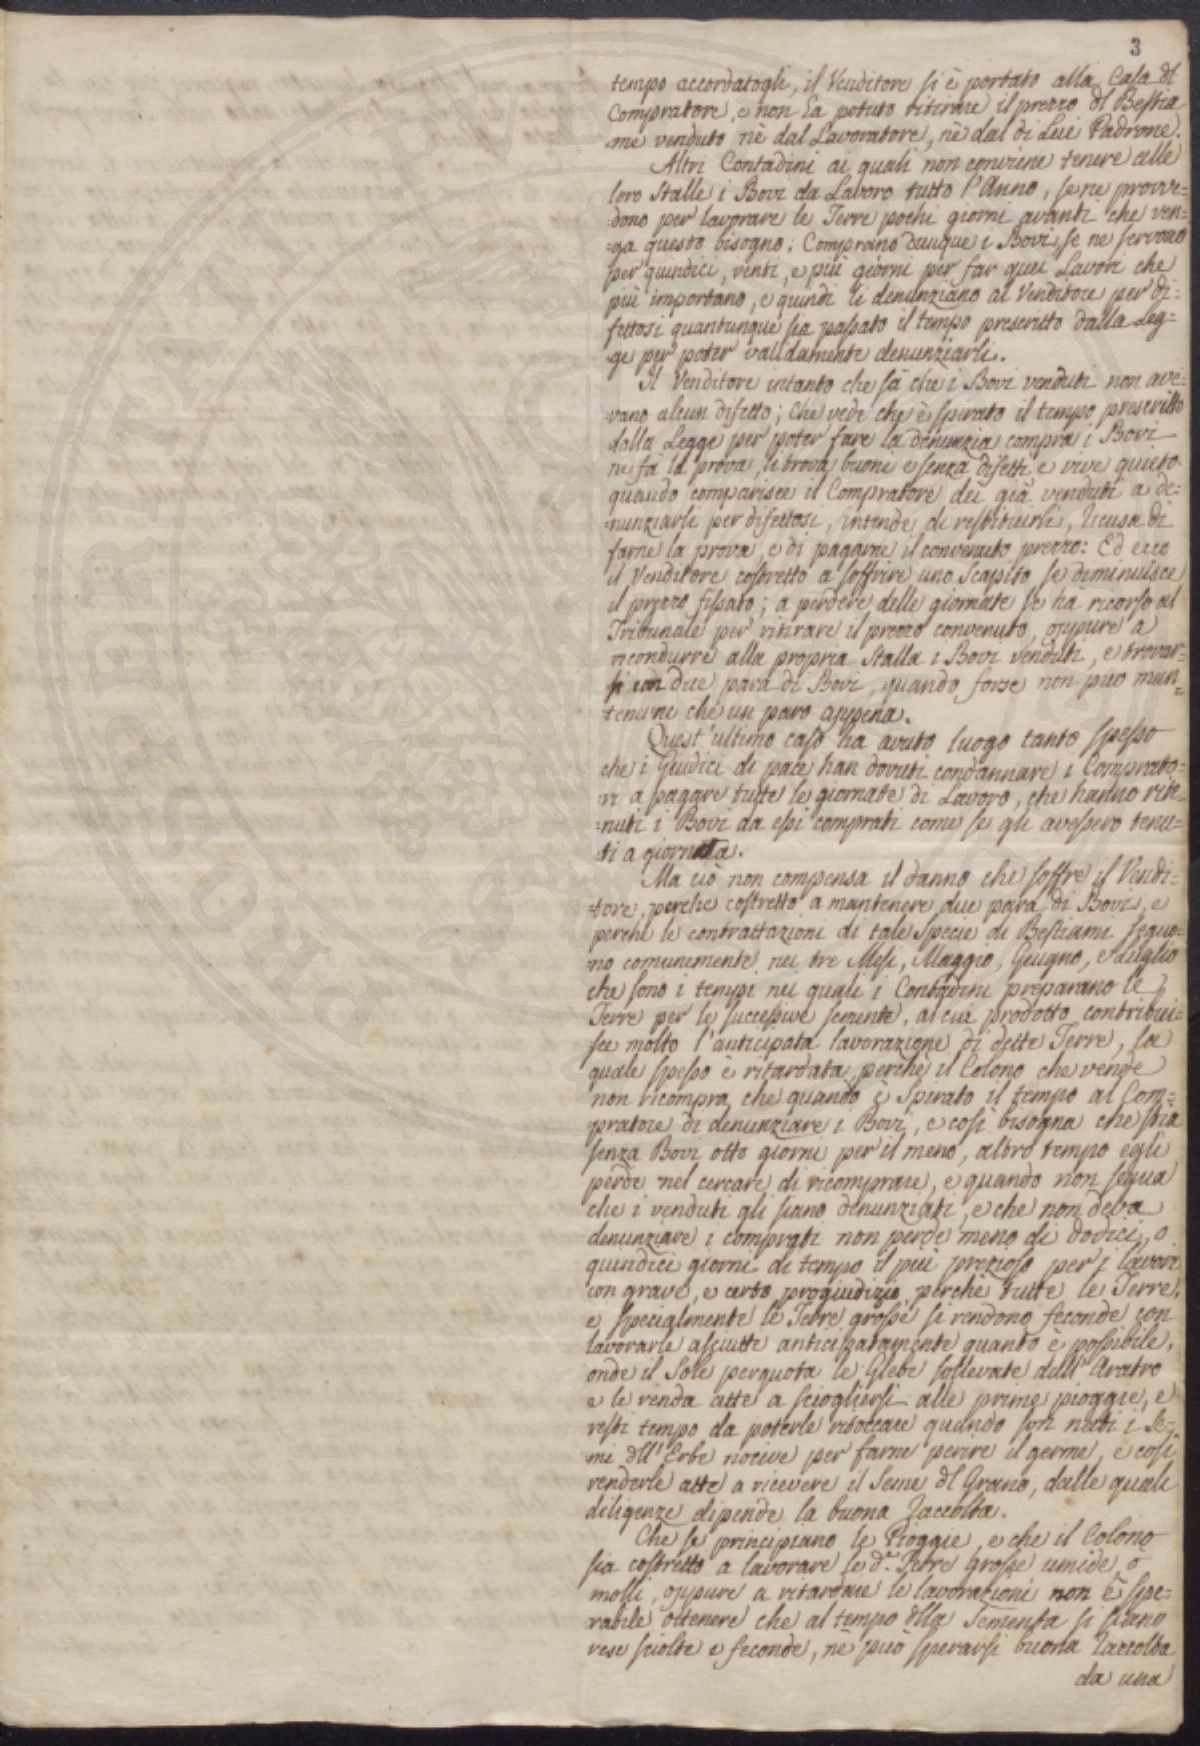 3
tempo accordatogli, il Venditore si è portato alla Casa dl
Compratore, e non ha potuto ritirare il prezzo dl Bestia
-me venduto nè dal Lavoratore, nè dal di Lui Padrone.
Altri Contadini ai quali non conviene tenere alle
loro Stalle i Bovi da Lavoro tutto l'Anno, se ne provve=
=dono per lavorare le Terre pochi giorni avanti che ven=
=ga questo bisogno; Comprano dunque i Bovi, se ne servono
per quindici, venti, e più giorni per far quei Lavori che
più importano, e quindi li denunziano al Venditore per di=
fettosi quantunque sia passato il tempo prescritto dalla Leg=
-ge per poter validamente denunziarli.
Il Venditore intanto che sà che i Bovi venduti non ave=
-vano alcun difetto; che vede che è spirato il tempo prescritto
dalla Legge per poter fare la denunzia compra i Bovi
ne fa la prova, li trova buoni e senza difetti e vive quieto
quando comparisce il Compratore dei già venduti a de=
=nunziarli per difettosi, intende di restituirli, ricusa di
farne la prova, e di pagarne il convenuto prezzo: Ed ecco
il Venditore costretto a soffrire uno Scapito se diminuisce
il prezzo fissato; a perdere delle giornate se hà ricorso al
Tribunale per ritirare il prezzo convenuto, oppure a
ricondurre alla propria Stalla i Bovi venduti, e trovar=
si con due para di Bovi, quando forse non può man=
-tenerne che un paro appena.
Quest'ultimo caso ha avuto luogo tanto spesso
che i Giudici di pace han dovuti condannare i Comprato=
-ri a pagare tutte le giornate di Lavoro, che hanno rite=
=nuti i Bovi da essi comprati come se gli avessero tenu=
-ti a giornata.
Ma ciò non compensa il danno che soffre il Vendi=
-tore, perche costretto a mantenere due para di Bovi, e
perchè le contrattazioni di tale Specie di Bestiami seguo=
-no comunemente nei tre Mesi, Maggio, Giugno, e Luglio
che sono i tempi nei quali i Contadini preparano le
Terre per le successive semente, al cui prodotto contribui=
sce molto l'anticipata lavorazione di dette Terre, la
quale spesso è ritardata, perchè il Colono che vende
non ricompra, che quando è Spirato il tempo al Com=
pratore di denunziare i Bovi, e così bisogna che stia
senza Bovi otto giorni per il meno, altro tempo egli
perde nel cercare di ricomprare, e quando non segua
che i venduti gli siano denunziati, e che non deva
denunziare i comprati non perde meno di dodici, o
quindici giorni di tempo il più prezioso per i lavori
con grave, e certo progiudizio, perchè tutte le Terre,
e specialmente le Terre grosse si rendono feconde con
lavorarle asciutte anticipatamente quanto è possibile,
onde il Sole perquota le Glebe sollevate dall'Aratro
e le renda atte a sciogliersi alle prime pioggie, e
resti tempo da poterle ritoccare quando son natti i Se=
-mi dll'Erbe nocive per farne perire il germe, e così
renderle atte a ricevere il Seme dl Grano, dalle quali
diligenze dipende la buona Raccolta.
Che se principiano le Pioggie, e che il Colono
sia costretto a lavorare le d.e Terre Grosse umide, ò
molli, oppure a ritardare le lavorazioni non è spe=
rabile ottenere che al tempo dlla Sementa si siano
rese sciolte e feconde, nè può sperarsi buona Raccolta
da una